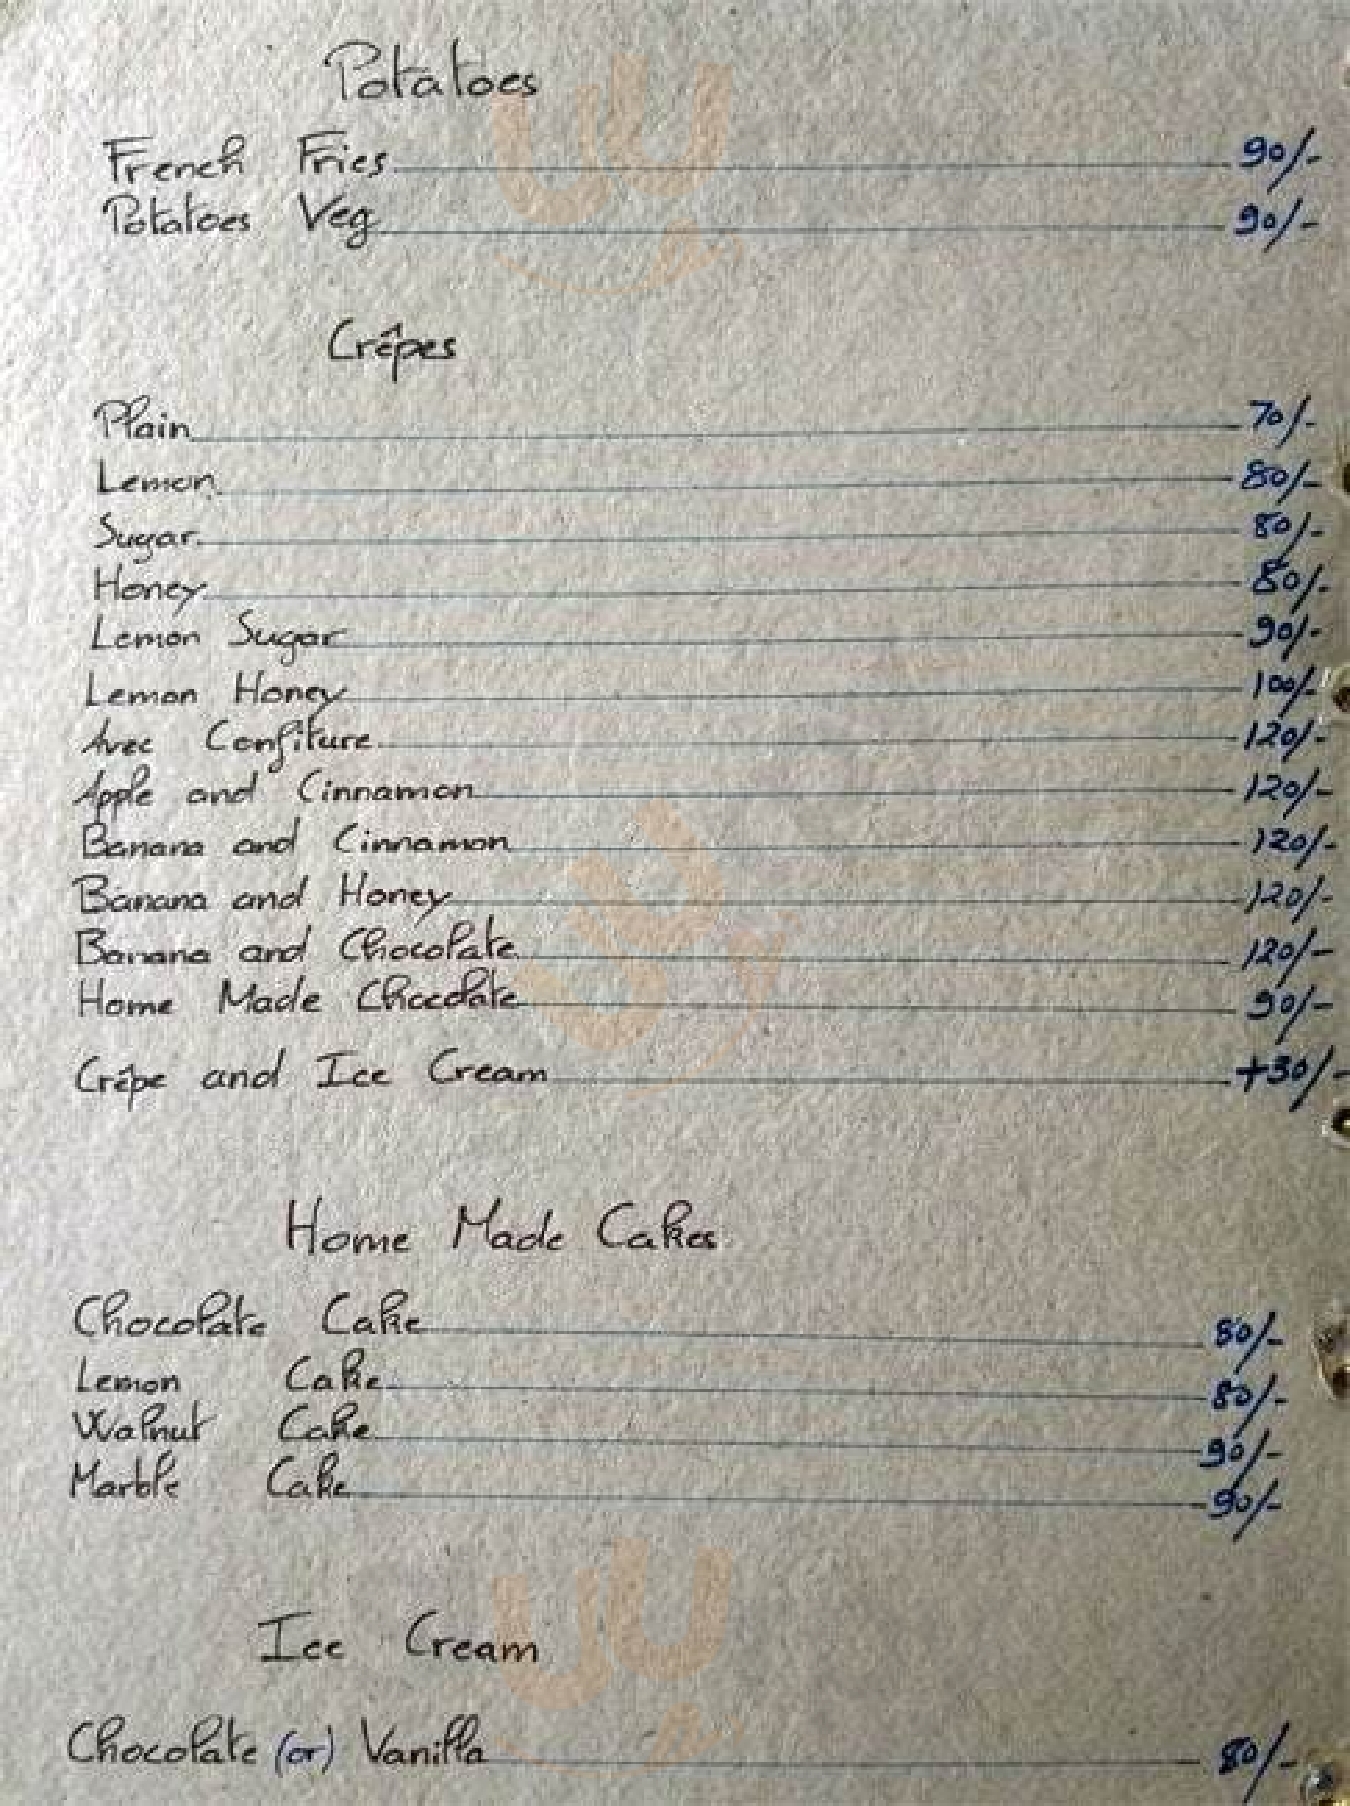 Potatoes
French Fries 90/-
Potatoes Veg 90/-
Crêpes
Plain 70/-
Lemon 80/-
Sugar 80/-
Honey 80/-
Lemon Sugar 90/-
Lemon Honey 100/-
Avec Confiture 120/-
Apple and Cinnamon 120/-
Banana and Cinnamon 120/-
Banana and Honey 120/-
Banana and Chocolate 120/-
Home Made Chocolate 90/-
Crêpe and Ice Cream +30/-
Home Made Cakes
Chocolate Cake 80/-
Lemon Cake 80/-
Walnut Cake 90/-
Marble Cake 90/-
Ice Cream
Chocolate (or) Vanilla 80/-